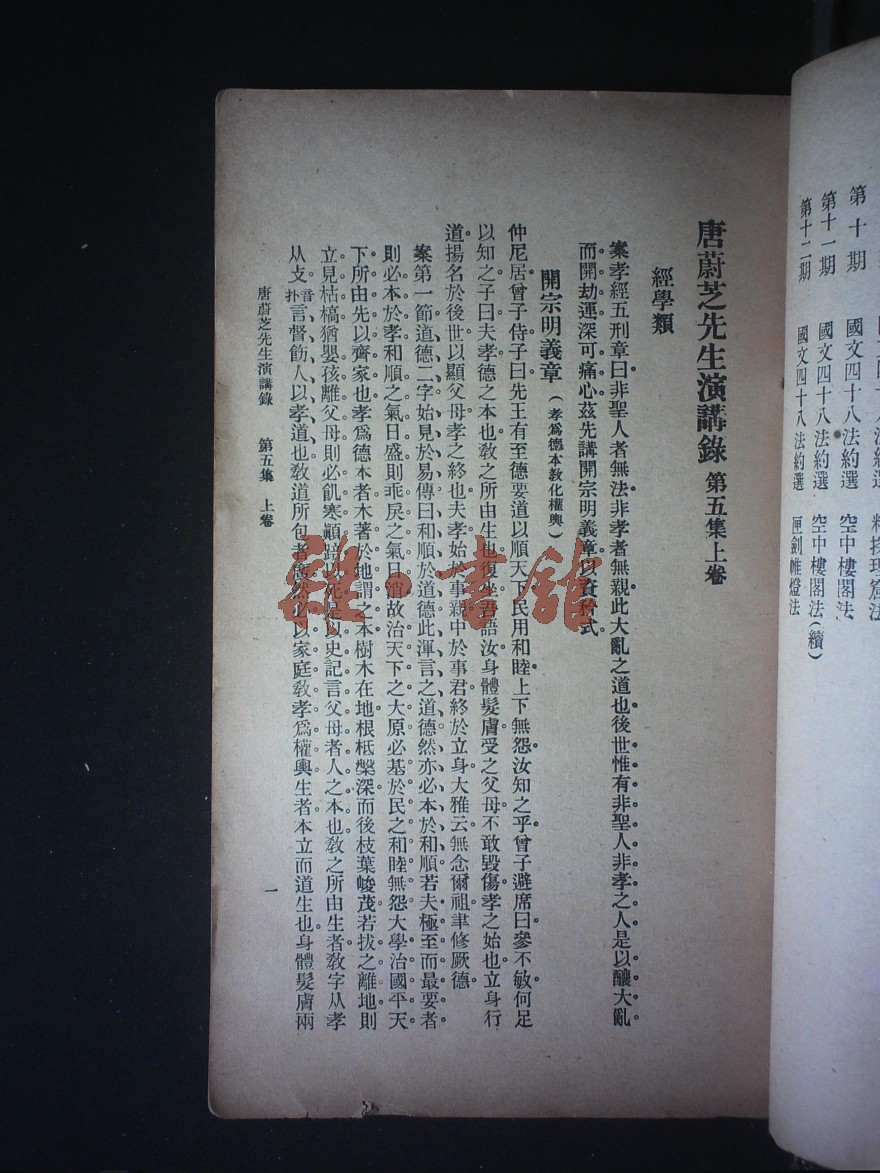 第十期　國文四十八法約選　空中樓閣法
第十一期　國文四十八法約選　空中樓閣法(續)
第十二期　國文四十八法約選　匣劍帷燈法
唐蔚芝先生演講錄　第五集上卷
經學類
案孝經五刑章曰非聖人者無法非孝者無親此大亂之道也後世惟有非聖人非孝之人是以釀大亂
而開劫運深可痛心茲先講開宗明義章以資矜式
開宗明義章（孝爲德本教化權輿）
仲尼居曾子侍子曰先王有至德要道以順天下民用和睦上下無怨汝知之乎曾子避席曰參不敏何足
以知之子曰夫孝德之本也敎之所由生也復坐吾語汝身體髮膚受之父母不敢毀傷孝之始也立身行
道揚名於後世以顯父母孝之終也夫孝始於事親中於事君終於立身大雅云無念爾祖聿修厥德
案第一節道德二字始見於易傳曰和順於道德此渾言之道德然亦必本於和順若夫極至而最要者
則必本於孝和順之氣日盛則乖戾之氣日消故治天下之大原必基於民之和睦無怨大學治國平天
下所由先以齊家也孝爲德本者木著於地謂之本樹木在地根柢槃深而後枝葉峻茂若拔之離地則
立見枯槁猶嬰孩離父母則必飢寒顚踣以死是以史記言父母者人之本也敎之所由生者敎字从孝
从攴音扑言督飭人以孝道也敎道所句者然必以家庭敎孝爲權輿生者本立而道生也身體髮膚兩
唐蔚芝先生演講錄　第五集　上卷　一
雜·書館